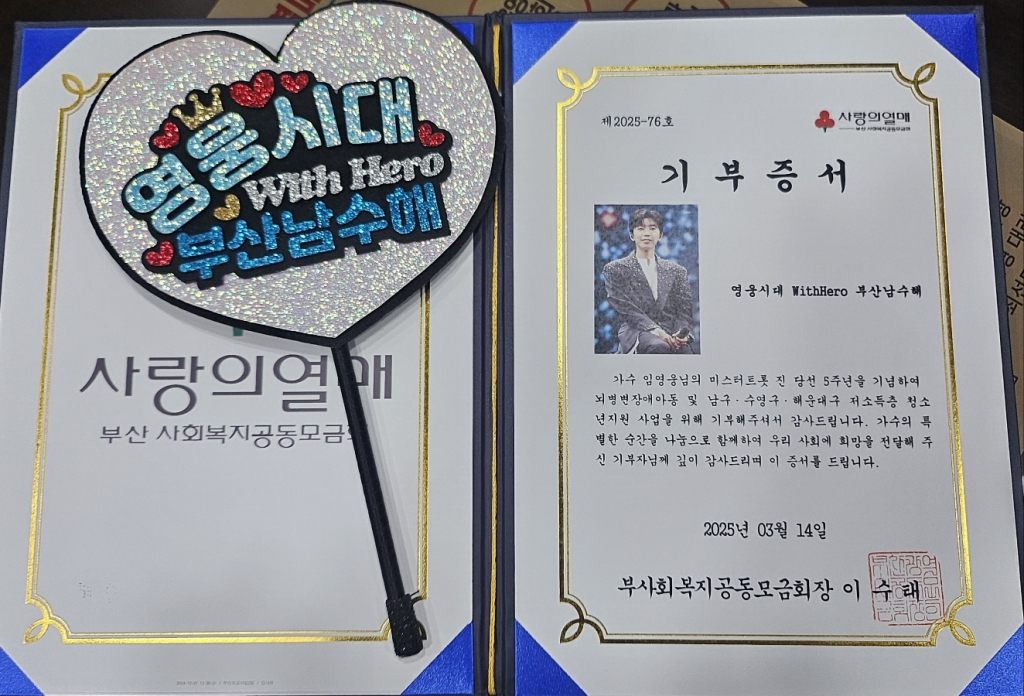 영웅시대
With Hero
부산남수해
사랑의열매
부산 사회복지공동모금회
제2025-76호
사랑의열매
부산 사회복지공동모금회
기부증서
영웅시대 WithHero 부산남수해
가수 임영웅님의 미스터트롯 진 당선 5주년을 기념하여
뇌병변장애아동 및 남구·수영구·해운대구 저소득층 청소
년지원 사업을 위해 기부해주셔서 감사드립니다. 가수의 특
별한 순간을 나눔으로 함께하여 우리 사회에 희망을 전달해 주
신 기부자님께 깊이 감사드리며 이 증서를 드립니다.
2025년 03월 14일
부사회복지공동모금회장 이 수 태